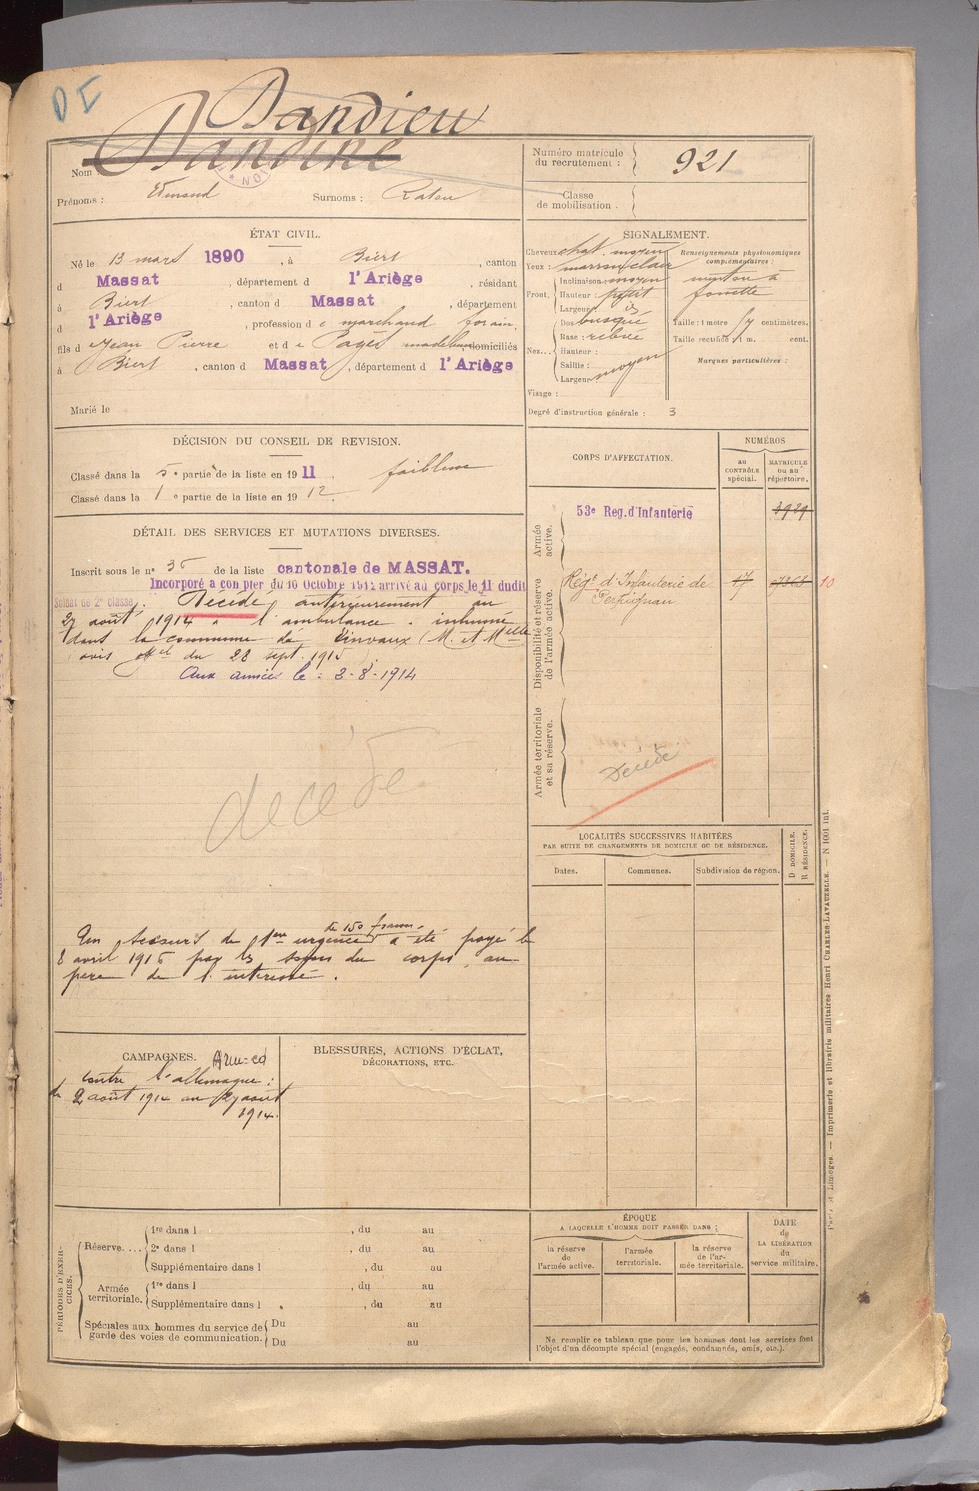 DE
Dandieu
Dandine
Nom :
Prénoms : Surnoms :
Numéro matricule
du recrutement : 921
Classe
de mobilisation :
ÉTAT CIVIL.
Né le 13 mars 1890, à Biert, canton
d Massat, département d l'Ariège, résidant
à Biert, canton d Massat, département
d l'Ariège, profession d e marchand forain,
fils d e Jean Pierre et d e Pagès domiciliés
à Biert, canton d Massat, département d l'Ariège
Marié le
SIGNALEMENT.
Cheveux chat. moyen
Yeux : marron clair
Front, Inclinaison : moyen
Hauteur : petit
Largeur :
Nez... Dos busqué
Base :
Hauteur :
Saillie :
Largeur moyen
Visage :
Renseignements physionomiques
complémentaires :
menton à
fossette
Taille : 1 mètre 57 centimètres.
Taille rectifiée : 1 m. cent.
Marques particulières :
Degré d'instruction générale : 3
DÉCISION DU CONSEIL DE REVISION.
Classé dans la 5e partie de la liste en 1911 faiblesse
Classé dans la 1e partie de la liste en 1912.
DÉTAIL DES SERVICES ET MUTATIONS DIVERSES.
Inscrit sous le n° 36 de la liste cantonale de MASSAT.
Incorporé à compter du 10 Octobre 1912 arrivé au corps le 11 dudit
Soldat de 2e classe. Décédé antérieurement au
27 août 1914 à l'ambulance - inhumé
dans la commune de (M. et Melle
avis off.el du 28 sept. 1915
Aux armées le : 3-8-1914
décédé
Un secours de 1ère urgence de 150 francs a été payé le
8 avril 1916 par les soins du corps, au
père de l'intéressé.
CORPS D'AFFECTATION.
NUMÉROS
au
CONTRÔLE
spécial.
MATRICULE
ou au
répertoire.
Armée
active.
53e Reg. d'Infanterie 3929
Disponibilité et réserve
de l'armée active.
Régt d'Infanterie de 17 10
Perpignan
Armée territoriale
et sa réserve.
Décédé
LOCALITÉS SUCCESSIVES HABITÉES
PAR SUITE DE CHANGEMENTS DE DOMICILE OU DE RÉSIDENCE.
Dates. Communes. Subdivision de région. D DOMICILE. R RÉSIDENCE.
CAMPAGNES.
Contre l'allemagne :
du 2 août 1914 au 27 août
1914.
BLESSURES, ACTIONS D'ÉCLAT,
DÉCORATIONS, ETC.
PÉRIODES D'EXERCICES.
Réserve.... 1re dans l , du au
2e dans l , du au
Supplémentaire dans l , du au
Armée
territoriale. 1re dans l , du au
Supplémentaire dans l , du au
Spéciales aux hommes du service de
garde des voies de communication. Du au
Du au
ÉPOQUE
A LAQUELLE L'HOMME DOIT PASSER DANS :
la réserve
de
l'armée active.
l'armée
territoriale.
la réserve
de l'ar-
mée territoriale.
DATE
de
LA LIBÉRATION
du
service militaire.
Ne remplir ce tableau que pour les hommes dont les services font
l'objet d'un décompte spécial (engagés, condamnés, omis, etc.).
Paris et Limoges. — Imprimerie et librairie militaires Henri CHARLES-LAVAUZELLE. — N 1001 int.